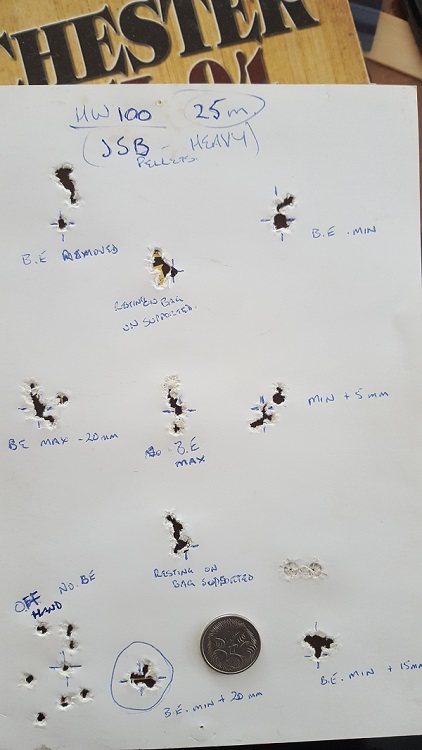 CHESTER
HW 100 25m
(JSB - HEAVY)
PELLETS
B.E REMOVED
B.E. MIN
RESTING ON BAG
UN SUPPORTED.
BE MAX - 20mm
B.E
MAX
MIN + 5mm
RESTING ON
BAG SUPPORTED
OFF
HAND
NO. BE
B.E. MIN + 20 mm
B.E. MIN + 15mm